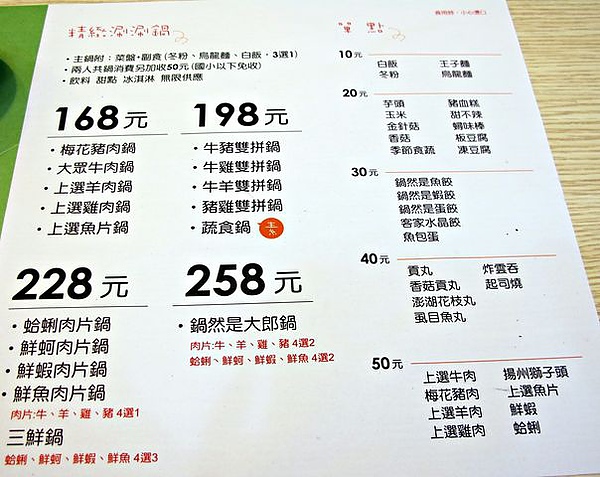 食用時，小心燙口
精緻涮涮鍋
・主鍋附：菜盤・副食(冬粉、烏龍麵、白飯，3選1)
・兩人共鍋消費另加收50元(國小以下免收)
・飲料 甜點 冰淇淋 無限供應
168元
・梅花豬肉鍋
・大眾牛肉鍋
・上選羊肉鍋
・上選雞肉鍋
・上選魚片鍋
198元
・牛豬雙拼鍋
・牛雞雙拼鍋
・牛羊雙拼鍋
・豬雞雙拼鍋
・蔬食鍋 素
228元
・蛤蜊肉片鍋
・鮮蚵肉片鍋
・鮮蝦肉片鍋
・鮮魚肉片鍋
肉片:牛、羊、雞、豬 4選1
三鮮鍋
蛤蜊、鮮蚵、鮮蝦、鮮魚 4選3
258元
・鍋然是大郎鍋
肉片:牛、羊、雞、豬 4選2
蛤蜊、鮮蚵、鮮蝦、鮮魚 4選2
單點
10元
白飯 王子麵
冬粉 烏龍麵
20元
芋頭 豬血糕
玉米 甜不辣
金針菇 蟳味棒
香菇 板豆腐
季節食蔬 凍豆腐
30元
鍋然是魚餃
鍋然是蝦餃
鍋然是蛋餃
客家水晶餃
魚包蛋
40元
貢丸 炸雲吞
香菇貢丸 起司燒
澎湖花枝丸
虱目魚丸
50元
上選牛肉 揚州獅子頭
梅花豬肉 上選魚片
上選羊肉 鮮蝦
上選雞肉 蛤蜊